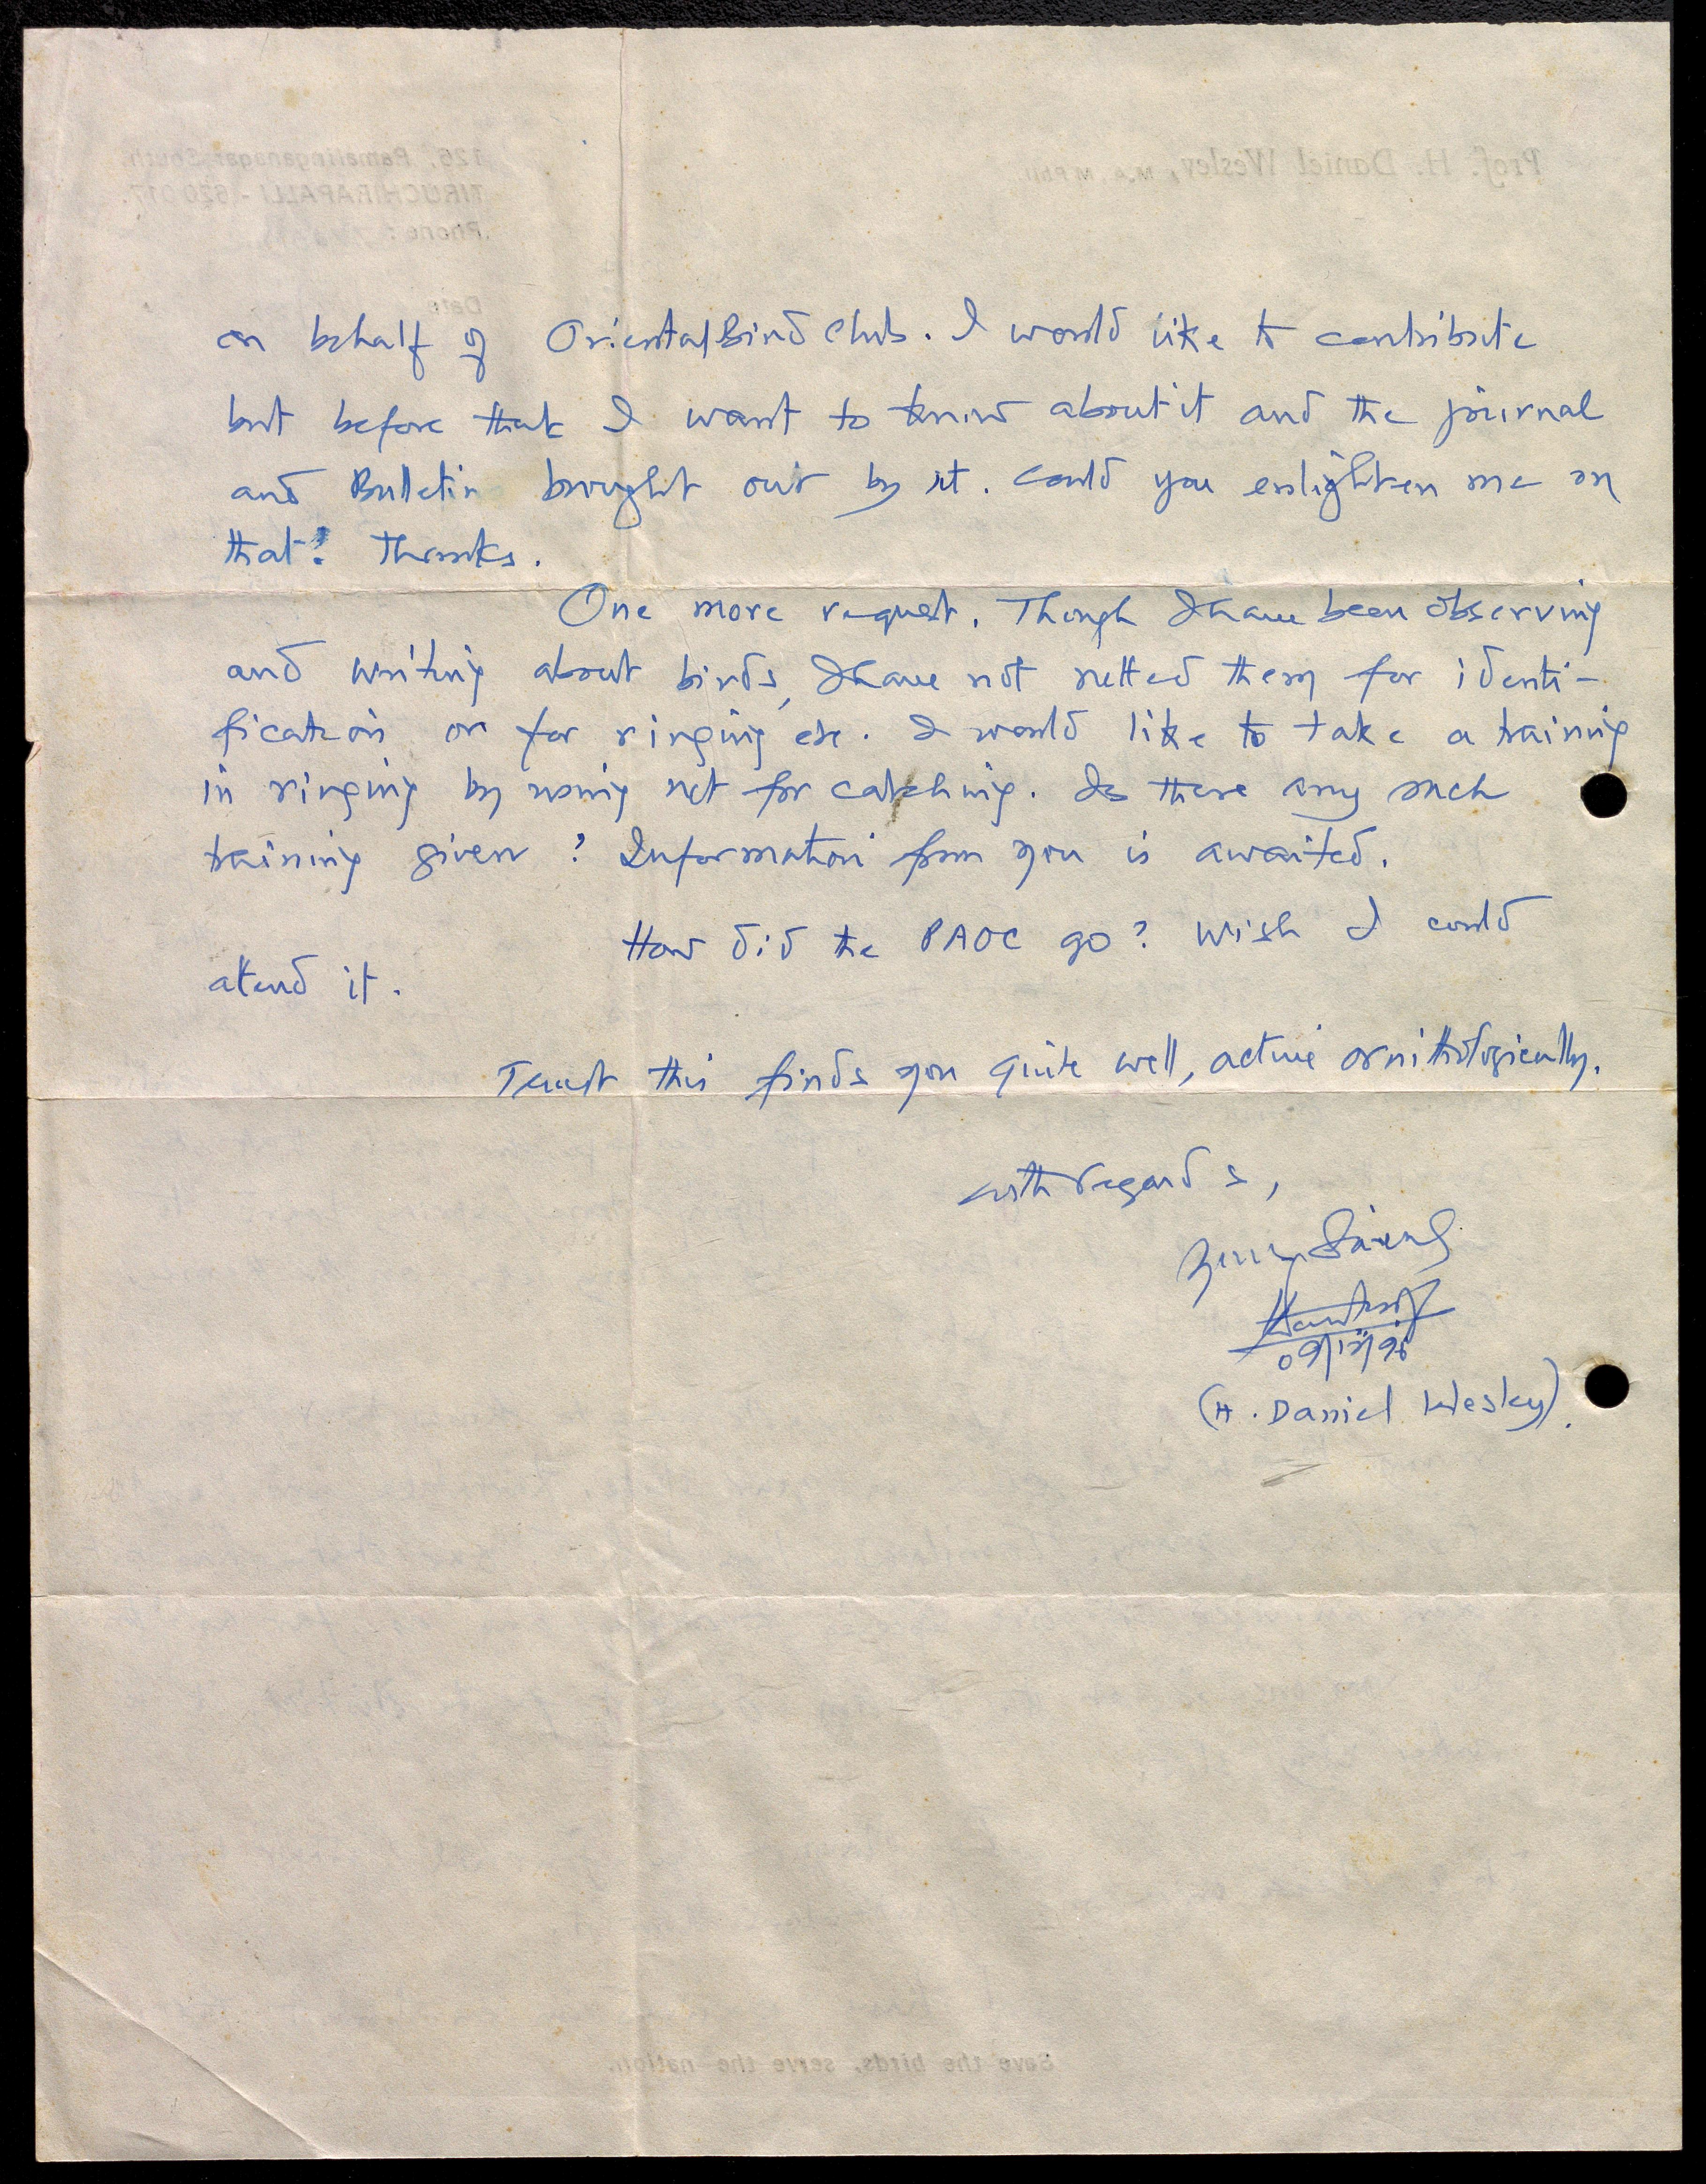 Prof. H. Daniel Wesley, M.A., M.Phil.,
126, Ramalinganagar South,
TIRUCHIRAPALLI - 620 017.
Phone :
Date
on behalf of Oriental Bird Club. I would like to contribute
but before that I want to know about it and the journal
and Bulletin brought out by it. Could you enlighten me on
that? Thanks.
One more request. Though I have been observing
and writing about birds, I have not netted them for identi-
fication or for ringing etc. I would like to take a training
in ringing by using net for catching. Is there any such
training given? Information from you is awaited.
How did the PAOC go? Wish I could
attend it.
Trust this finds you quite well, active ornithologically.
with regards,
Yours
09/12/96
(H. Daniel Wesley).
Save the birds, serve the nation.